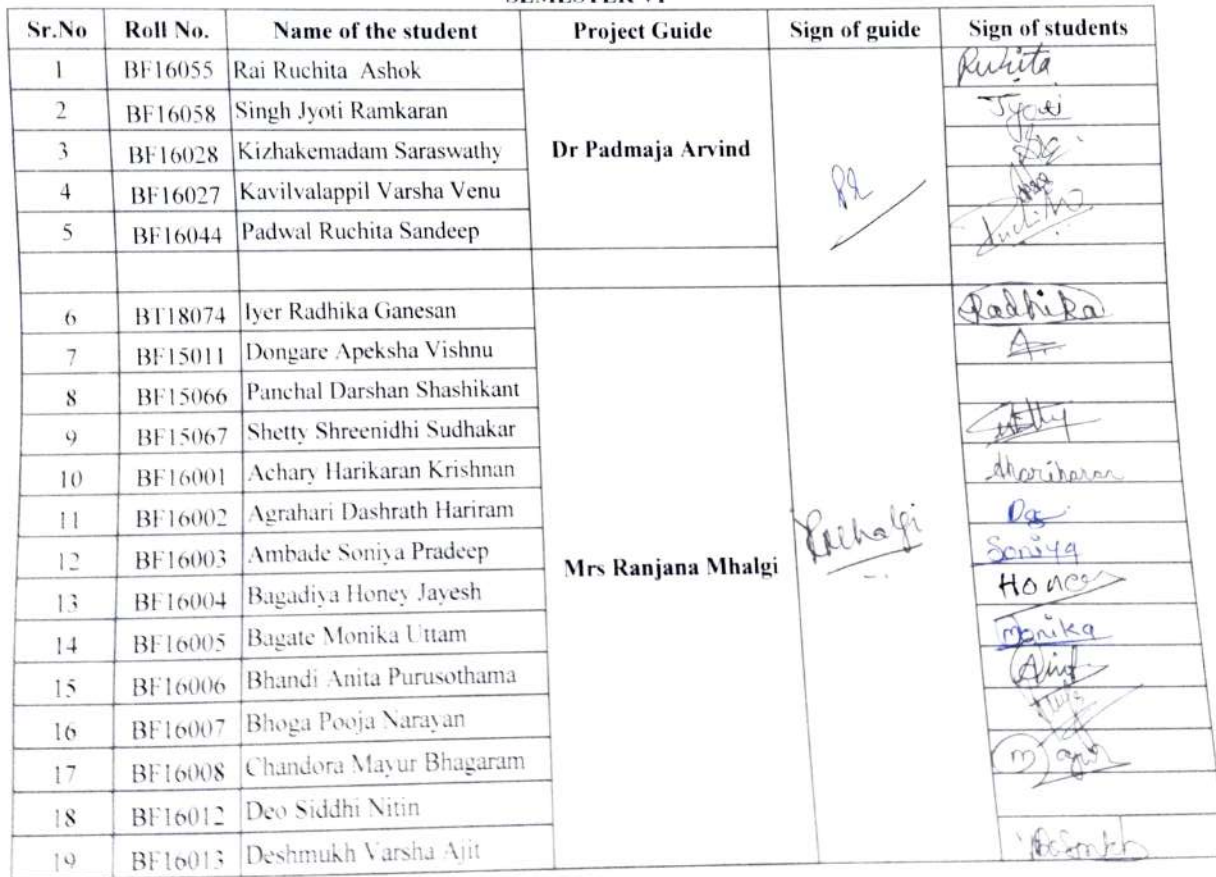 SEMESTER VI
Sr.No Roll No. Name of the student Project Guide Sign of guide Sign of students
1 BF16055 Rai Ruchita Ashok Ruhita
2 BF16058 Singh Jyoti Ramkaran Jyoti
3 BF16028 Kizhakemadam Saraswathy Dr Padmaja Arvind
4 BF16027 Kavilvalappil Varsha Venu
5 BF16044 Padwal Ruchita Sandeep
6 BT18074 Iyer Radhika Ganesan Radhika
7 BF15011 Dongare Apeksha Vishnu
8 BF15066 Panchal Darshan Shashikant
9 BF15067 Shetty Shreenidhi Sudhakar
10 BF16001 Achary Harikaran Krishnan
11 BF16002 Agrahari Dashrath Hariram
12 BF16003 Ambade Soniya Pradeep Mrs Ranjana Mhalgi Soniya
13 BF16004 Bagadiya Honey Jayesh
14 BF16005 Bagate Monika Uttam monika
15 BF16006 Bhandi Anita Purusothama
16 BF16007 Bhoga Pooja Narayan
17 BF16008 Chandora Mayur Bhagaram
18 BF16012 Deo Siddhi Nitin
19 BF16013 Deshmukh Varsha Ajit